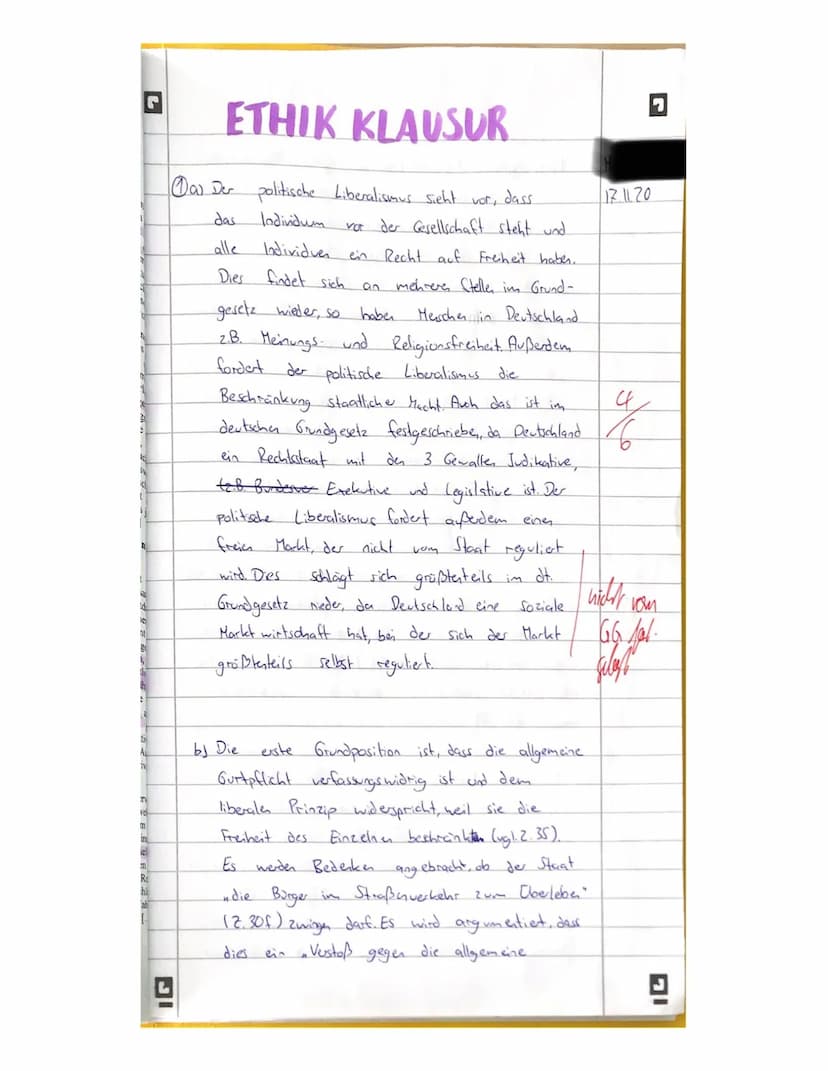 ETHIK KLAUSUR
17.11.20
① a) Der politische Liberalismus sieht vor, dass
das Individuum vor der Gesellschaft steht und
alle Individuen ein Recht auf Freiheit haben.
Dies findet sich an mehreren Stellen im Grund-
gesetz wieder, so haben Menschen in Deutschland
z.B. Meinungs- und Religionsfreiheit. Außerdem
fordert der politische Liberalismus die
Beschränkung staatlicher Macht. Auch das ist im
deutschen Grundgesetz festgeschrieben, da Deutschland
ein Rechtsstaat mit den 3 Gewalten Judikative,
Exekutive und Legislative ist. Der
politische Liberalismus fordert außerdem einen
freien Markt, der nicht vom Staat reguliert
wird. Dies schlägt sich größtenteils im dt.
Grundgesetz nieder, da Deutschland eine soziale
Marktwirtschaft hat, bei der sich der Markt
größtenteils selbst reguliert.
4/6
nicht vom
GG
b) Die erste Grundposition ist, dass die allgemeine
Gurtpflicht verfassungswidrig ist und dem
liberalen Prinzip widerspricht, weil sie die
Freiheit des Einzelnen beschränkt (vgl. Z. 35).
Es werden Bedenken angebracht, ob der Staat
„die Bürger im Straßenverkehr zum Überleben"
(Z. 30f) zwingen darf. Es wird argumentiert, dass
dies ein „Verstoß gegen die allgemeine